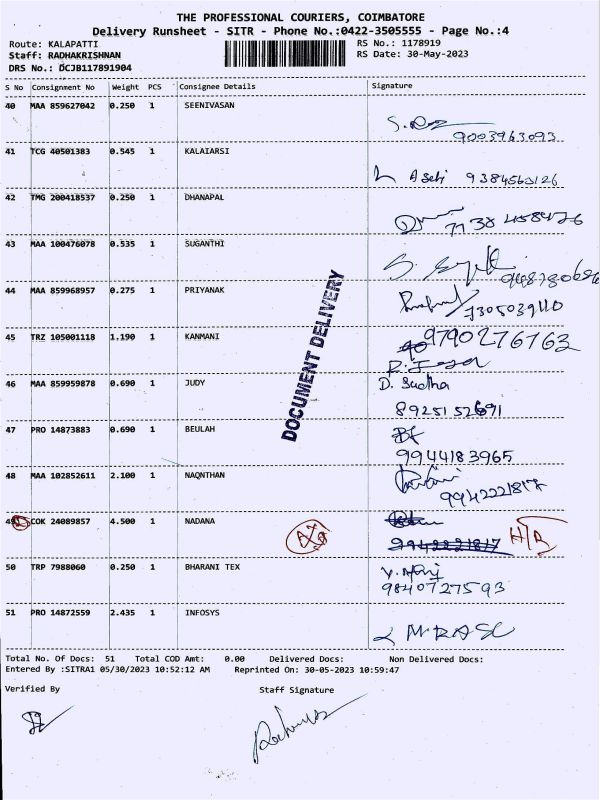 THE PROFESSIONAL COURIERS, COIMBATORE
Delivery Runsheet - SITR - Phone No.:0422-3505555 - Page No.:4
Route: KALAPATTI RS No.: 1178919
Staff: RADHAKRISHNAN RS Date: 30-May-2023
DRS No.: DCJB117891904
S No Consignment No Weight PCS Consignee Details Signature
40 MAA 859627042 0.250 1 SEENIVASAN
9003963093
41 TCG 40501383 0.545 1 KALAIARSI
9384563126
42 TMG 200418537 0.250 1 DHANAPAL
7138458426
43 MAA 100476078 0.535 1 SUGANTHI
44 MAA 859968957 0.275 1 PRIYANAK
7305039110
45 TRZ 105001118 1.190 1 KANMANI
9790276763
46 MAA 859959878 0.690 1 JUDY
D. Sudha
8925152691
47 PRO 14873883 0.690 1 BEULAH
9944183965
48 MAA 102852611 2.100 1 NAQNTHAN
9942221817
49 COK 24089857 4.500 1 NADANA
9942221817 H/R
50 TRP 7988060 0.250 1 BHARANI TEX
V. Mani
9840727593
51 PRO 14872559 2.435 1 INFOSYS
DOCUMENT DELIVERY
Total No. Of Docs: 51 Total COD Amt: 0.00 Delivered Docs: Non Delivered Docs:
Entered By :SITRA1 05/30/2023 10:52:12 AM Reprinted On: 30-05-2023 10:59:47
Verified By Staff Signature